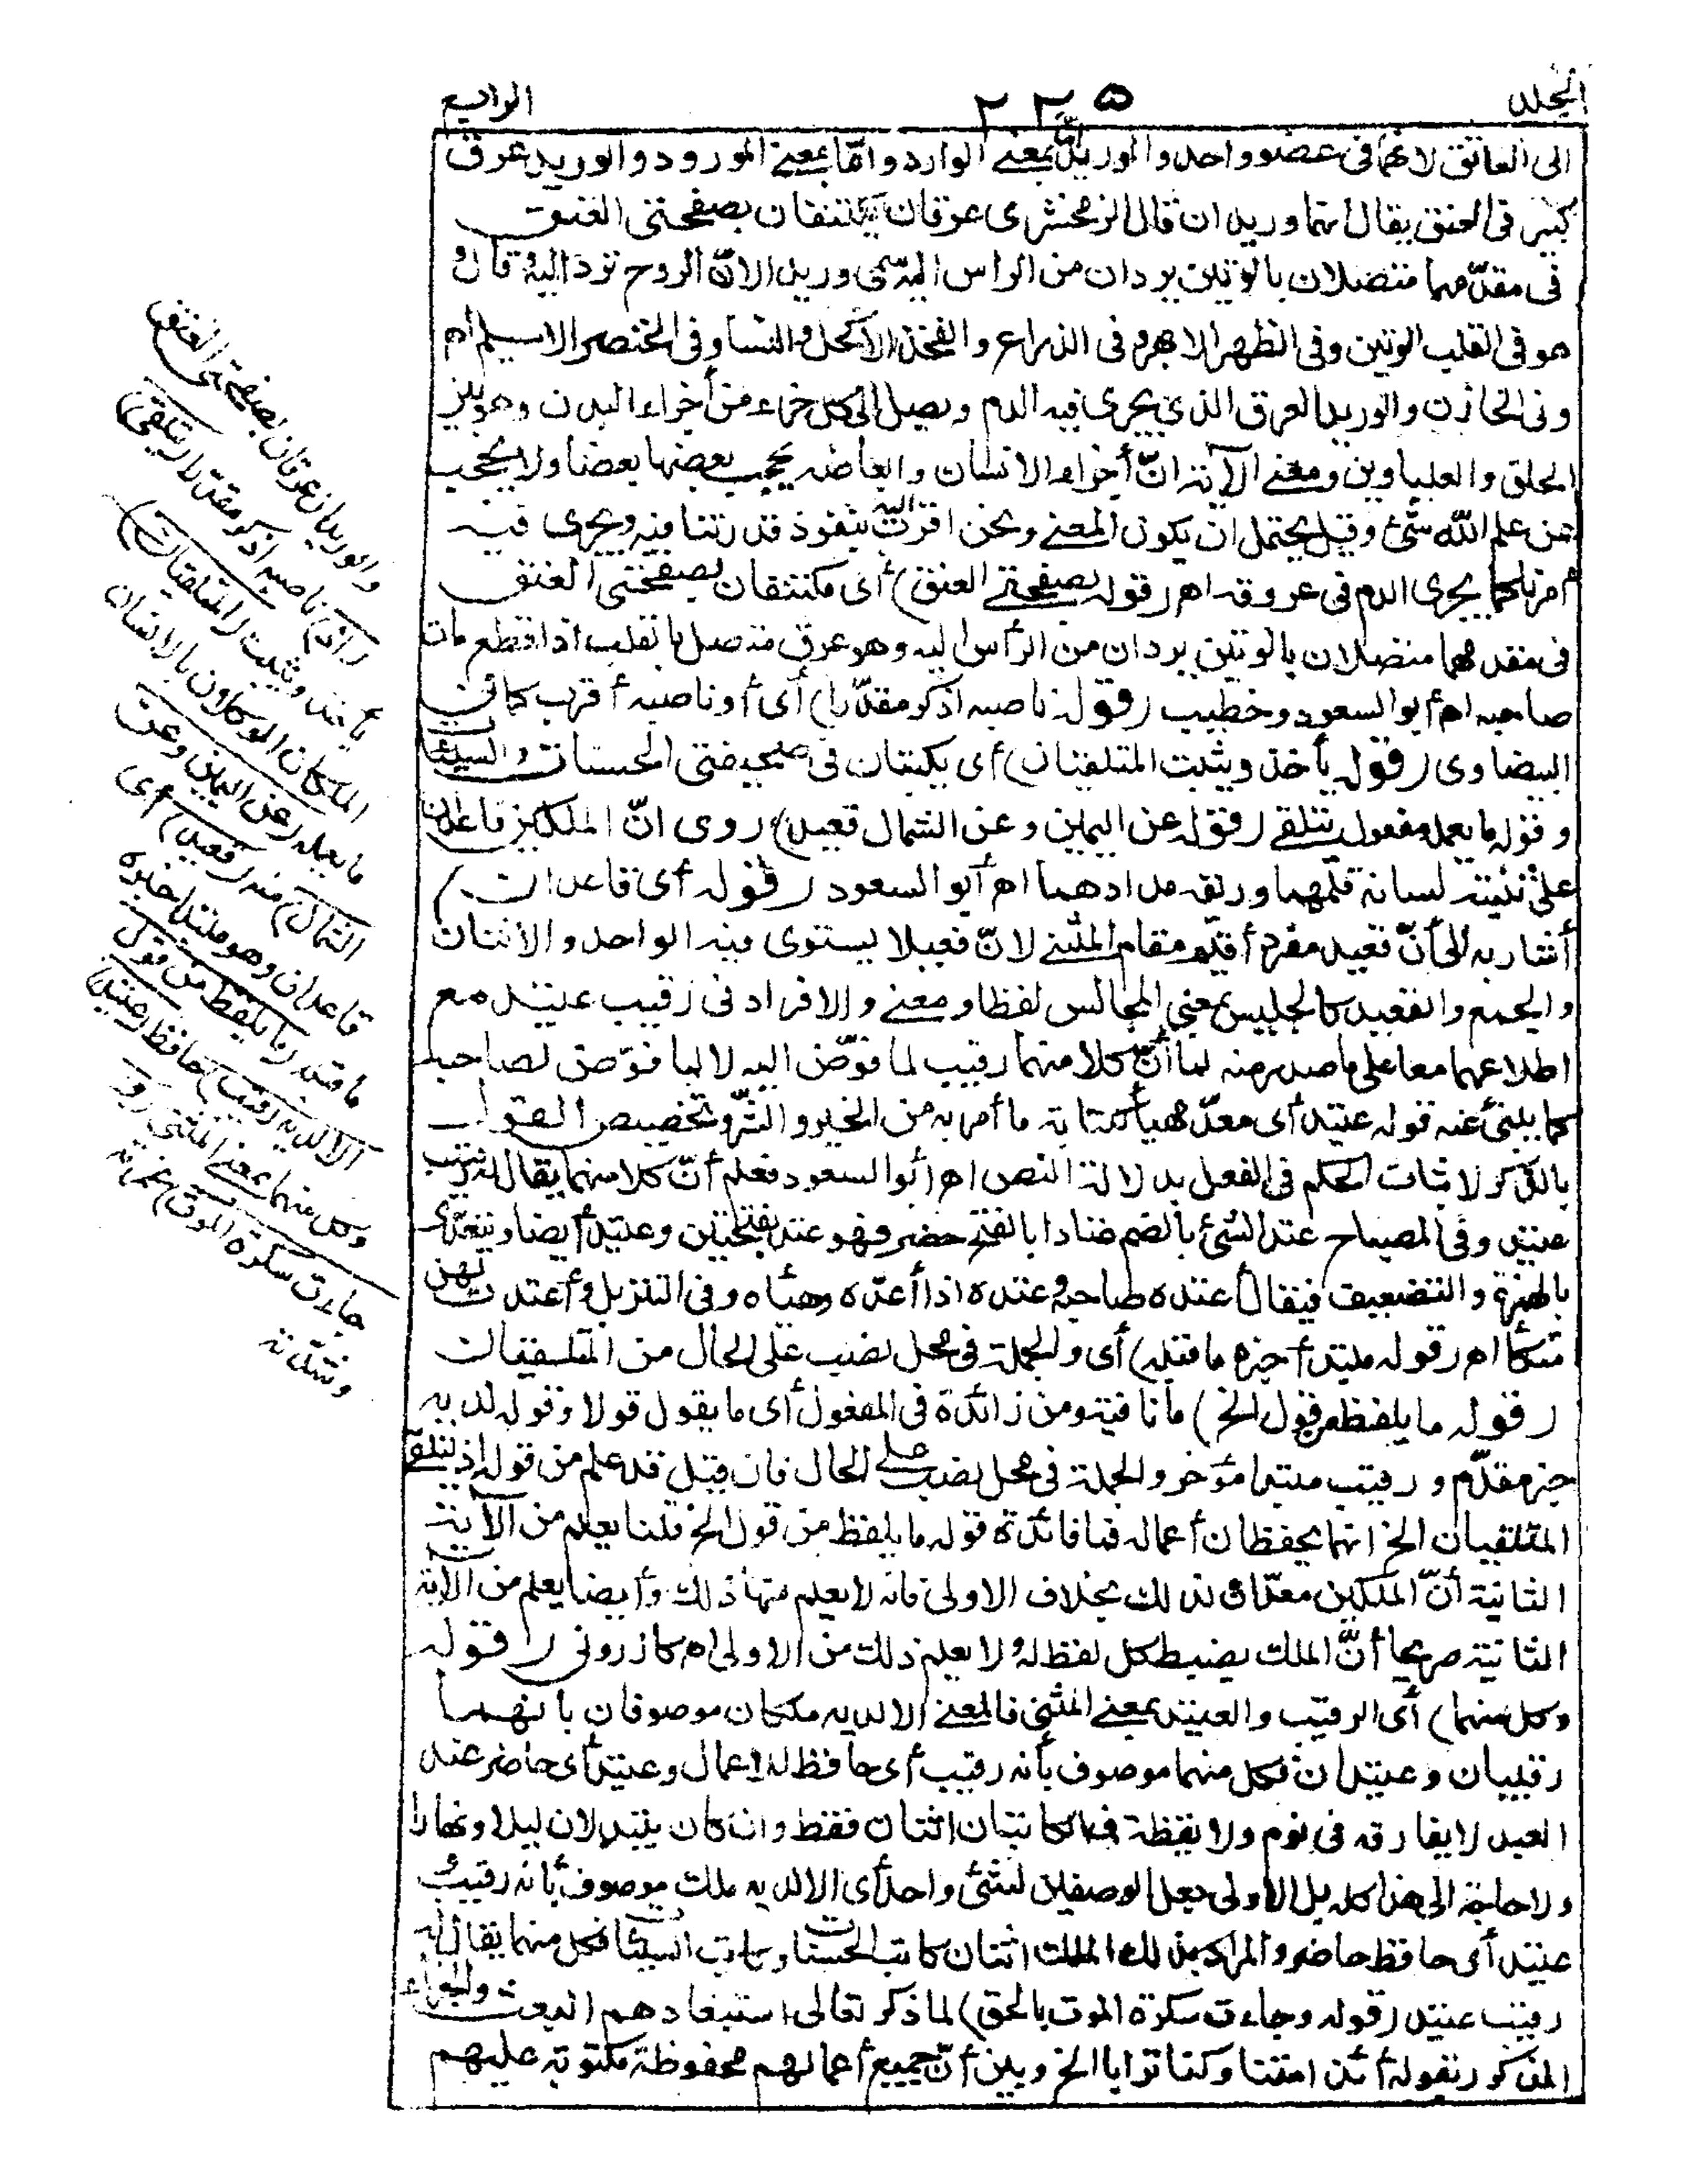 المجلد
٢٢٥
الرابع
الى العاتق لانهما فى عضو واحد والوريد امّا بمعنى الوارد وامّا بمعنى المورود والوريد عرق
كبير فى العنق يقال انهما وريدان قال الزمخشرى عرقان يكتنفان بصفحتى العنق
فى مقدّمهما متصلان بالوتين يردان من الراس اليه سمى وريدا لانّ الروح ترد اليه قال و
هو فى القلب الوتين وفى الظهر الابهر وفى الذراع والفخذ الاكحل والنسا وفى الخنصر الاسيلم اه
وفى الخازن والوريد العرق الذى يجرى فيه الدم ويصل الى كل جزء من أجزاء البدن وهو بين
الحلق والعلباوين ومعنى الآية انّ أجزاء الانسان وابعاضه يحجب بعضها بعضا ولا يحجب
عن علم الله شئ وقيل يحتمل ان يكون المعنى ونحن اقرب اليه بنفوذ قدرتنا فيه ويجرى فيه
أمرنا كما يجرى الدم فى عروقه اه (قوله بصفحتى العنق) أى مكتنفان لصفحتى العنق
فى مقدمهما متصلان بالوتين يردان من الرأس اليه وهو عرق متصل بالقلب اذا قطع مات
صاحبه اه أبو السعود وخطيب (قوله ناصبه اذكر مقدّرا) أى أو ناصبه أقرب كما فى
البيضاوى (قوله يأخذ ويثبت المتلقيان) أى يكتبان فى صحيفتى الحسنات والسيئات
وقوله ما يعمله مفعول يتلقى (قوله عن اليمين وعن الشمال قعيد) روى انّ الملكين قاعدان
على ثنيته لسانه قلمهما وريقه مدادهما اه أبو السعود (قوله أى قاعدان)
أشار به الى أنّ قعيد مفرد أقيم مقام المثنى لانّ فعيلا يستوى فيه الواحد والاثنان
والجمع والقعيد كالجليس بمعنى المجالس لفظا ومعنى والافراد فى رقيب عتيد مع
اطلاعهما معا على ما صدر منه لما أنّ كلا منهما رقيب لما فوّض اليه لا لما فوّض لصاحبه
كما ينبئ عنه قوله عتيد أى معدّ مهيأ لكتابة ما أمر به من الخير والشرّ وتخصيص القول
بالذكر لاثبات الحكم فى الفعل بدلالة النص اه (أبو السعود فعلم أنّ كلا منهما يقال له رقيب
عتيد وفى المصباح عتد الشئ بالضم عتادا بالفتح حضر فهو عتد بفتحتين وعتيد أيضا ويتعدّى
بالهمزة والتضعيف فيقال أعتده صاحبه وعتده اذا أعدّه وهيأه وفى التنزيل وأعتدت لهن
متكأ اه (قوله مبتدأ خبره ما قبله) أى والجملة فى محل نصب على الحال من المتلقيان
(قوله ما يلفظ من قول الخ) ما نافية ومن زائدة فى المفعول أى ما يقول قولا وقوله لديه
خبر مقدّم ورقيب مبتدا مؤخر والجملة فى محل نصب على الحال فان قيل قد علم من قوله اذ يتلقى
المتلقيان الخ انهما يحفظان أعماله فما فائدة قوله ما يلفظ من قول الخ قلنا يعلم من الآية
الثانية أنّ الملكين معدّان لذلك بخلاف الاولى فانه لا يعلم منها ذلك وأيضا يعلم من الآية
الثانية صريحا أنّ الملك يضبط كل لفظ له ولا يعلم ذلك من الاولى اه كازرونى (قوله
وكل منهما) أى الرقيب والعتيد بمعنى المثنى فالمعنى الا لديه ملكان موصوفان بانهما
رقيبان وعتيدان فكل منهما موصوف بأنه رقيب أى حافظ للاعمال وعتيد أى حاضر عند
العبد لا يفارقه فى نوم ولا يقظة فهما كاتبان اثنان فقط وان كان يتبدلان ليلا ونهارا
ولا حاجة الى هذا كله بل الاولى جعل الوصفين لشئ واحد أى الا لديه ملك موصوف بأنه رقيب و
عتيد أى حافظ حاضر والمراد بذلك الملك اثنان كاتب الحسنات وكاتب السيئات فكل منهما يقال له
رقيب عتيد (قوله وجاءت سكرة الموت بالحق) لما ذكر تعالى استبعادهم البعث والجزاء
المذكور بقوله أئذا متنا وكنا ترابا الخ وبين أنّ جميع أعمالهم محفوظة مكتوبة عليهم
والوريدان عرقان بصفحتى العنق
(اذ) ناصبه اذكر مقدرا (يتلقى)
يأخذ ويثبت (المتلقيان)
الملكان الموكلان بالانسان
ما يعمله (عن اليمين وعن
الشمال) منه (قعيد) أى
قاعدان وهو مبتدا خبره
ما قبله (ما يلفظ من قول
الا لديه رقيب) حافظ (عتيد)
وكل منهما بمعنى المثنى (و
جاءت سكرة الموت) غمرته
وشدّته